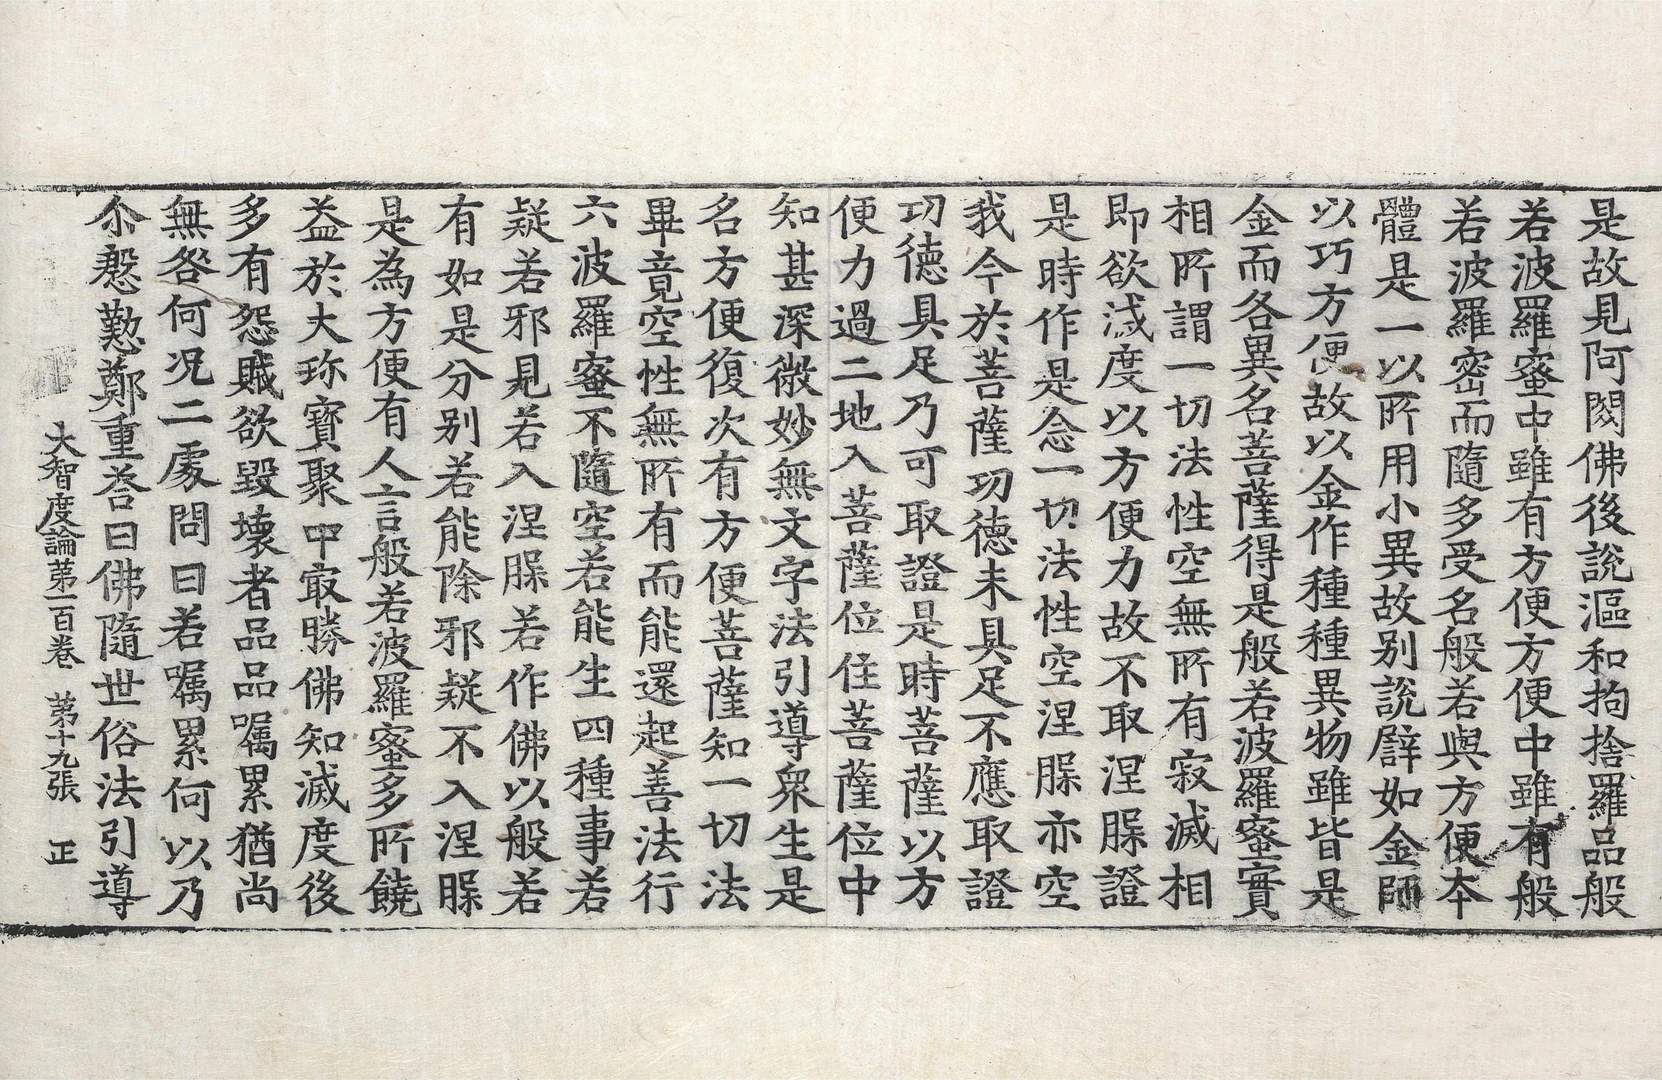 是故見阿閦佛後說漚和拘捨羅品般
若波羅蜜中雖有方便方便中雖有般
若波羅蜜而隨多受名般若與方便本
體是一以所用小異故別說譬如金師
以巧方便故以金作種種異物雖皆是
金而各異名菩薩得是般若波羅蜜實
相所謂一切法性空無所有寂滅相
即欲滅度以方便力故不取涅槃證
是時作是念一切法性空涅槃亦空
我今於菩薩功德未具足不應取證
功德具足乃可取證是時菩薩以方
便力過二地入菩薩位住菩薩位中
知甚深微妙無文字法引導衆生是
名方便復次有方便菩薩知一切法
畢竟空性無所有而能還起善法行
六波羅蜜不隨空若能生四種事若
疑若邪見若入涅槃若作佛以般若
有如是分別若能除邪疑不入涅槃
是為方便有人言般若波羅蜜多所饒
益於大珎寶聚中㝡勝佛知滅度後
多有怨賊欲毀壞者品品囑累猶尚
無咎何況二處問曰若囑累何以乃
尒慇懃鄭重荅曰佛隨世俗法引導
大智度論第一百卷 第十九張 正